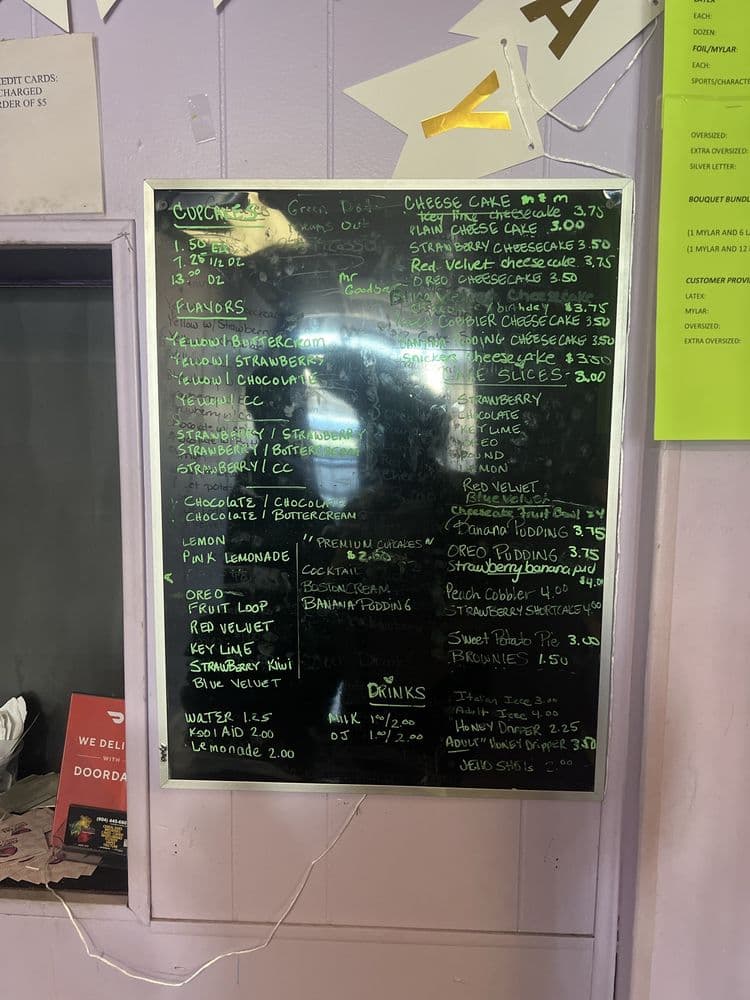 EDIT CARDS:
CHARGED
RDER OF $5
A
Y
CUPCAKES
1.50 EA
7.25 1/2 DZ
13.00 DZ
Green Dots
Mr
Goodbar
FLAVORS
YELLOW/BUTTERCREAM
YELLOW/STRAWBERRY
YELLOW/CHOCOLATE
YELLOW/CC
STRAWBERRY/STRAWBERRY
STRAWBERRY/BUTTERCREAM
STRAWBERRY/CC
CHOCOLATE/CHOCOLATE
CHOCOLATE/BUTTERCREAM
LEMON
PINK LEMONADE
OREO
FRUIT LOOP
RED VELVET
KEY LIME
STRAWBERRY KIWI
BLUE VELVET
"PREMIUM CUPCAKES"
COCKTAIL
BOSTON CREAM
BANANA PUDDING
CHEESE CAKE M&M
Key lime cheesecake 3.75
PLAIN CHEESE CAKE 3.00
STRAWBERRY CHEESECAKE 3.50
Red Velvet cheesecake 3.75
OREO CHEESECAKE 3.50
cheesecake
/birthday $3.75
COBBLER CHEESECAKE 3.50
PUDDING CHEESECAKE 3.50
Snickers cheesecake
SLICES - 3.00
STRAWBERRY
CHOCOLATE
KEY LIME
RED VELVET
Blue Velvet
Cheesecake Fruit Bowl $4
Banana PUDDING 3.75
OREO PUDDING 3.75
Strawberry banana pud
$4.00
Peach Cobbler 4.00
STRAWBERRY SHORTCAKE 4.00
Sweet Potato Pie 3.00
BROWNIES 1.50
DRINKS
WATER 1.25
KOOL AID 2.00
Lemonade 2.00
MILK 1.00/2.00
OJ 1.00/2.00
Italian Icee 3.00
Adult Icee 4.00
HONEY DRIPPER 2.25
ADULT" HONEY Dripper 3.50
JELLO SHOTS 2.00
WE DELI
WITH
DOORDA
LATEX
EACH:
DOZEN:
FOIL/MYLAR:
EACH:
SPORTS/CHARACTE
OVERSIZED:
EXTRA OVERSIZED:
SILVER LETTER:
BOUQUET BUNDL
(1 MYLAR AND 6 L
(1 MYLAR AND 12
CUSTOMER PROVI
LATEX:
MYLAR:
OVERSIZED:
EXTRA OVERSIZED: